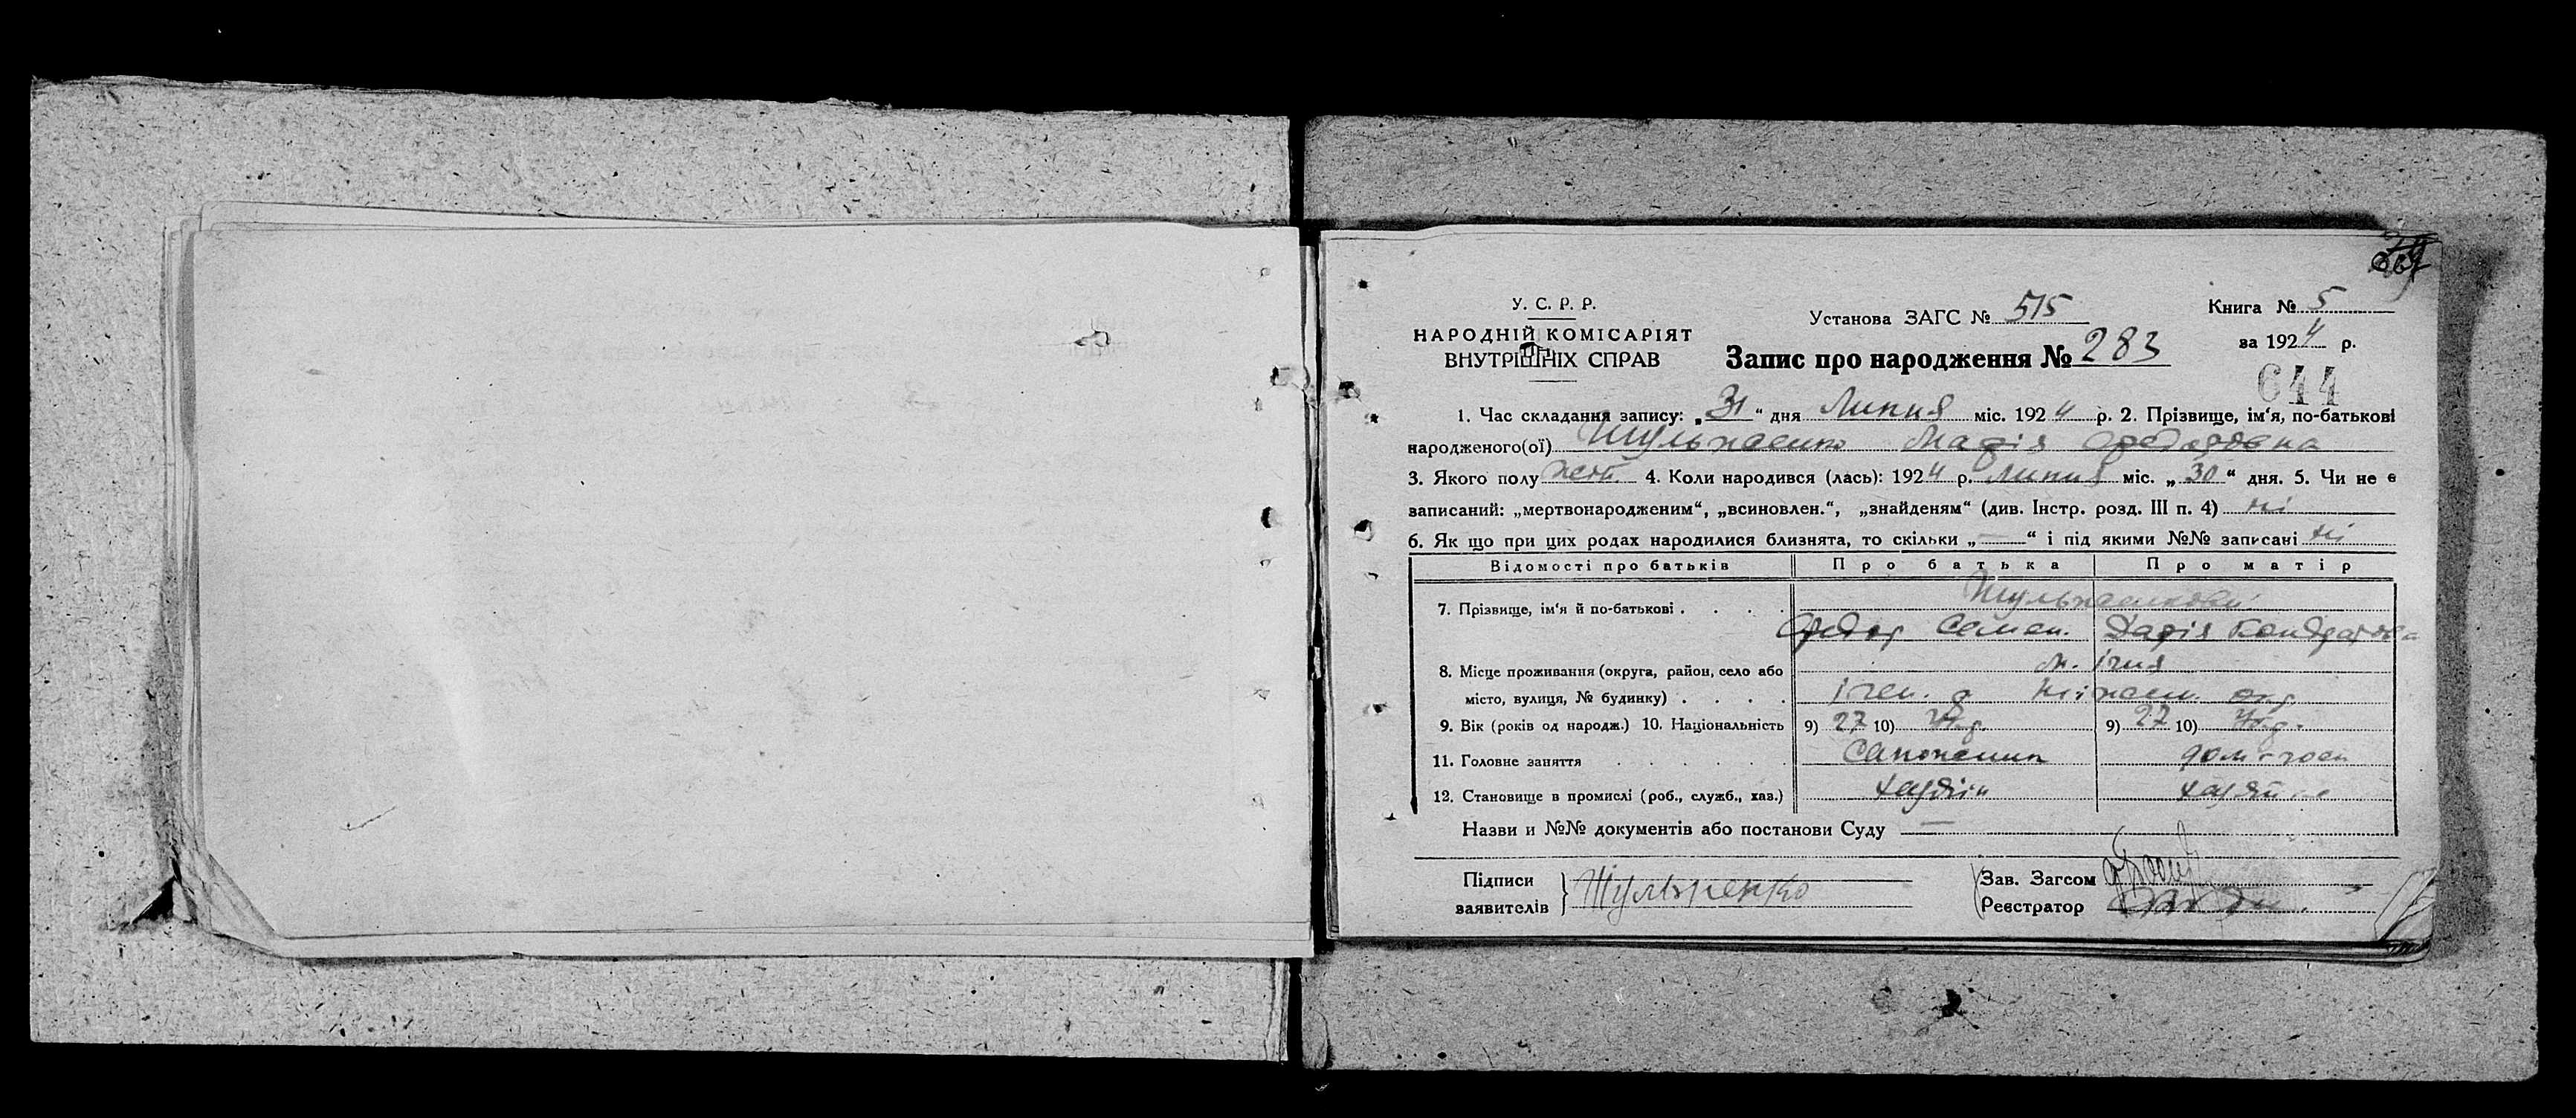 У. С. Р. Р.
НАРОДНІЙ КОМІСАРІЯТ
ВНУТРІШНІХ СПРАВ
Установа ЗАГС № 515
Запис про народження № 283
Книга № 5
за 1924 р.
644
1. Час складання запису: „31“ дня Липня міс. 1924 р. 2. Прізвище, ім‘я, по-батькові
народженого(ої) Марія Федоровна
3. Якого полу жен. 4. Коли народився (лась): 1924 р. Липня міс. „30“ дня. 5. Чи не є
записаний: „мертвонародженим“, „всиновлен.“, „знайденям“ (див. Інстр. розд. III п. 4) ні
6. Як що при цих родах народилися близнята, то скільки „—“ і під якими №№ записані ні
Відомості про батьків Про батька Про матір
7. Прізвище, ім‘я й по-батькові . . . .
Федор Семен. Дарія Кондратовна
8. Місце проживання (округа, район, село або м. Ічня
місто, вулиця, № будинку) . . . . Ічен. р Ніжен. окр.
9. Вік (років од народж.) 10. Національність 9) 27 10) Укр. 9) 27 10) Укр.
11. Головне заняття . . . . . . Сапожник дом. госп
12. Становище в промислі (роб., служб., хаз.) хазяїн хазяйка
Назви и №№ документів або постанови Суду —
Підписи
заявителів
Шульженко
Зав. Загсом
Реєстратор